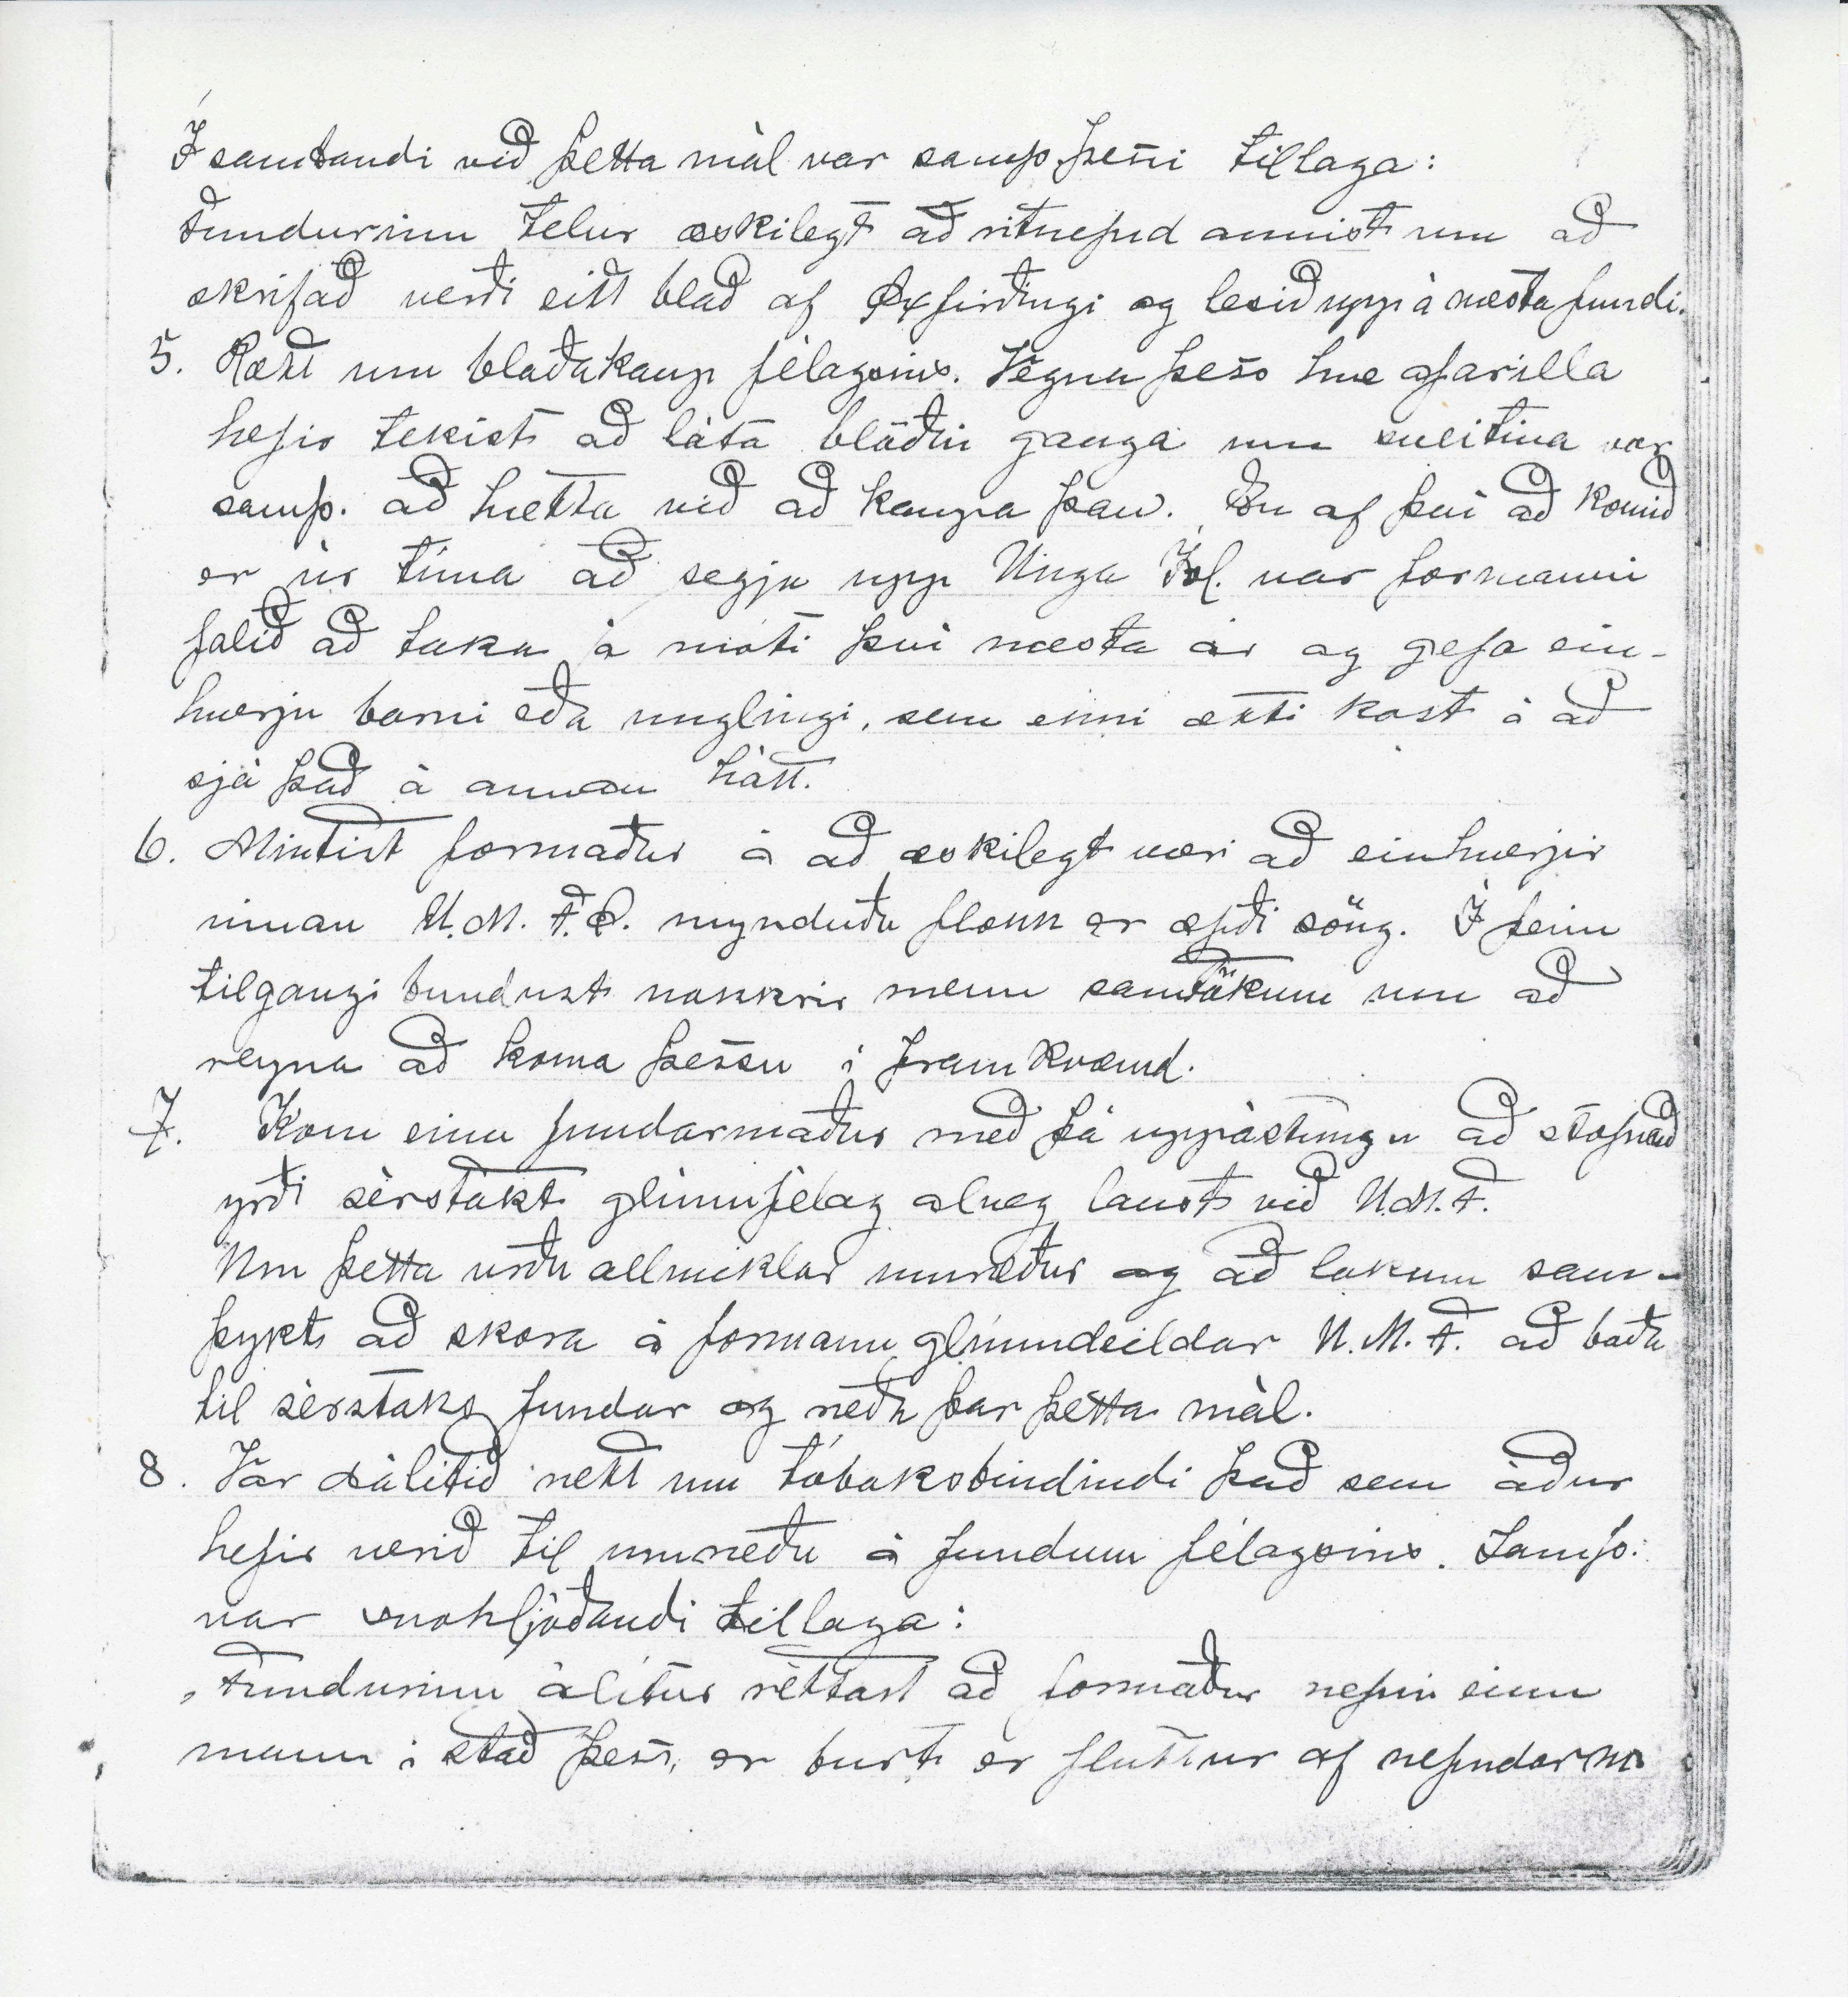 Í sambandi við þetta mál var samþ. þessi tillaga:
Fundurinn telur æskilegt að ritnefnd annist um að
skrifað verði eitt blað af Øxfirðingi og lesið upp á næsta fundi.
5. Rætt um blaðakaup félagsins. Vegna þess hve afarilla
hefir tekist að láta blöðin ganga um sveitina var
samþ. að hætta við að kaupa þau. En af því að komið
er úr tíma að segja upp Unga Ísl. var formanni
falið að taka á móti því næsta ár og gefa ein-
hverju barni eða unglingi, sem eigi ætti kost á að
sjá það á annan hátt.
6. Mintist formaður á að æskilegt væri að einhverjir
innan U.M.F.Ø. mynduðu flokk er æfði söng. Í þeim
tilgangi bundust nokkrir menn samtökum um að
reyna að koma þessu í framkvæmd.
7. Kom einn fundarmaður með þá uppástungu að stofnað
yrði sérstakt glímufélag alveg laust við U.M.F.
Um þetta urðu allmiklar umræður og að lokum sam-
þykt að skora á formann glímudeildar U.M.F. að boða
til sérstaks fundar og ræða þar þetta mál.
8. Var dálítið rætt um tóbaksbindindi það sem áður
hefir verið til umræðu á fundum félagsins. Samþ.
var svohljóðandi tillaga:
„Fundurinn álítur réttast að formaður nefni einn
mann í stað þess, er burt er fluttur af nefndarm